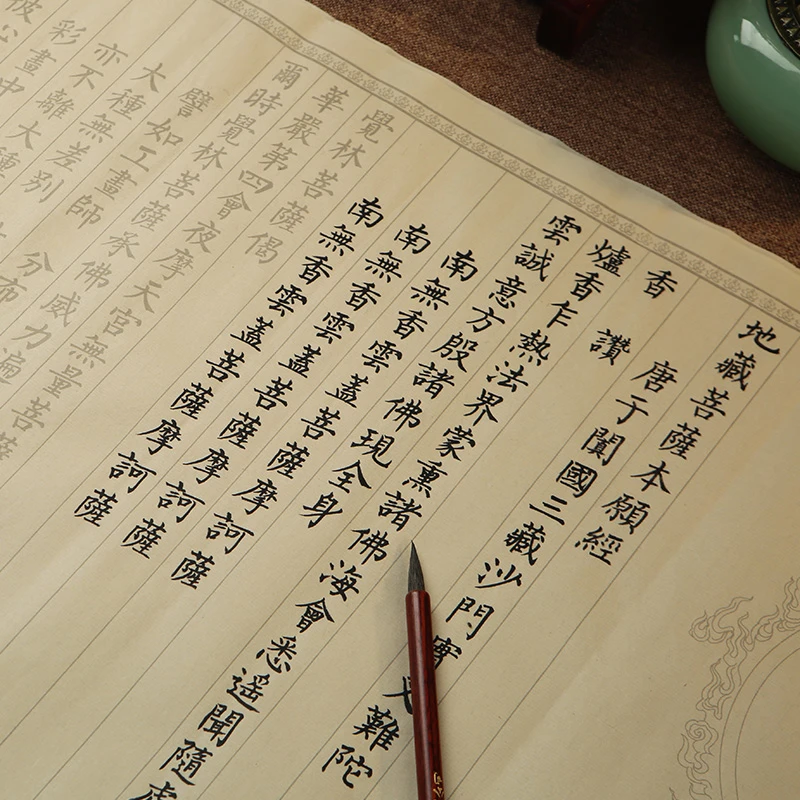 地藏菩薩本願經
唐于闐國三藏沙門實叉難陀
香讚
爐香乍熱法界蒙熏諸佛海會悉遙聞隨處
雲誠意方殷諸佛現全身
南無香雲蓋菩薩摩訶薩
南無香雲蓋菩薩摩訶薩
南無香雲蓋菩薩摩訶薩
覺林菩薩偈
華嚴第四會夜摩天宮無量菩薩
爾時覺林菩薩承佛威力遍
譬如工畫師分布
大種無差別
亦不離大種
彩畫中
彼心